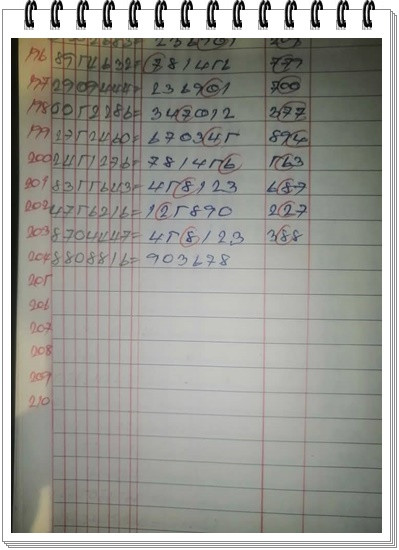 196 89546632= 781456 779
197 2909444= 236901 700
198 5052286= 347012 377
199 2752460= 670345 894
200 2451276= 781456 563
201 8355643= 458123 687
202 4756216= 125890 227
203 8704447= 458123 388
204 8808816= 903678
205
206
207
208
209
210